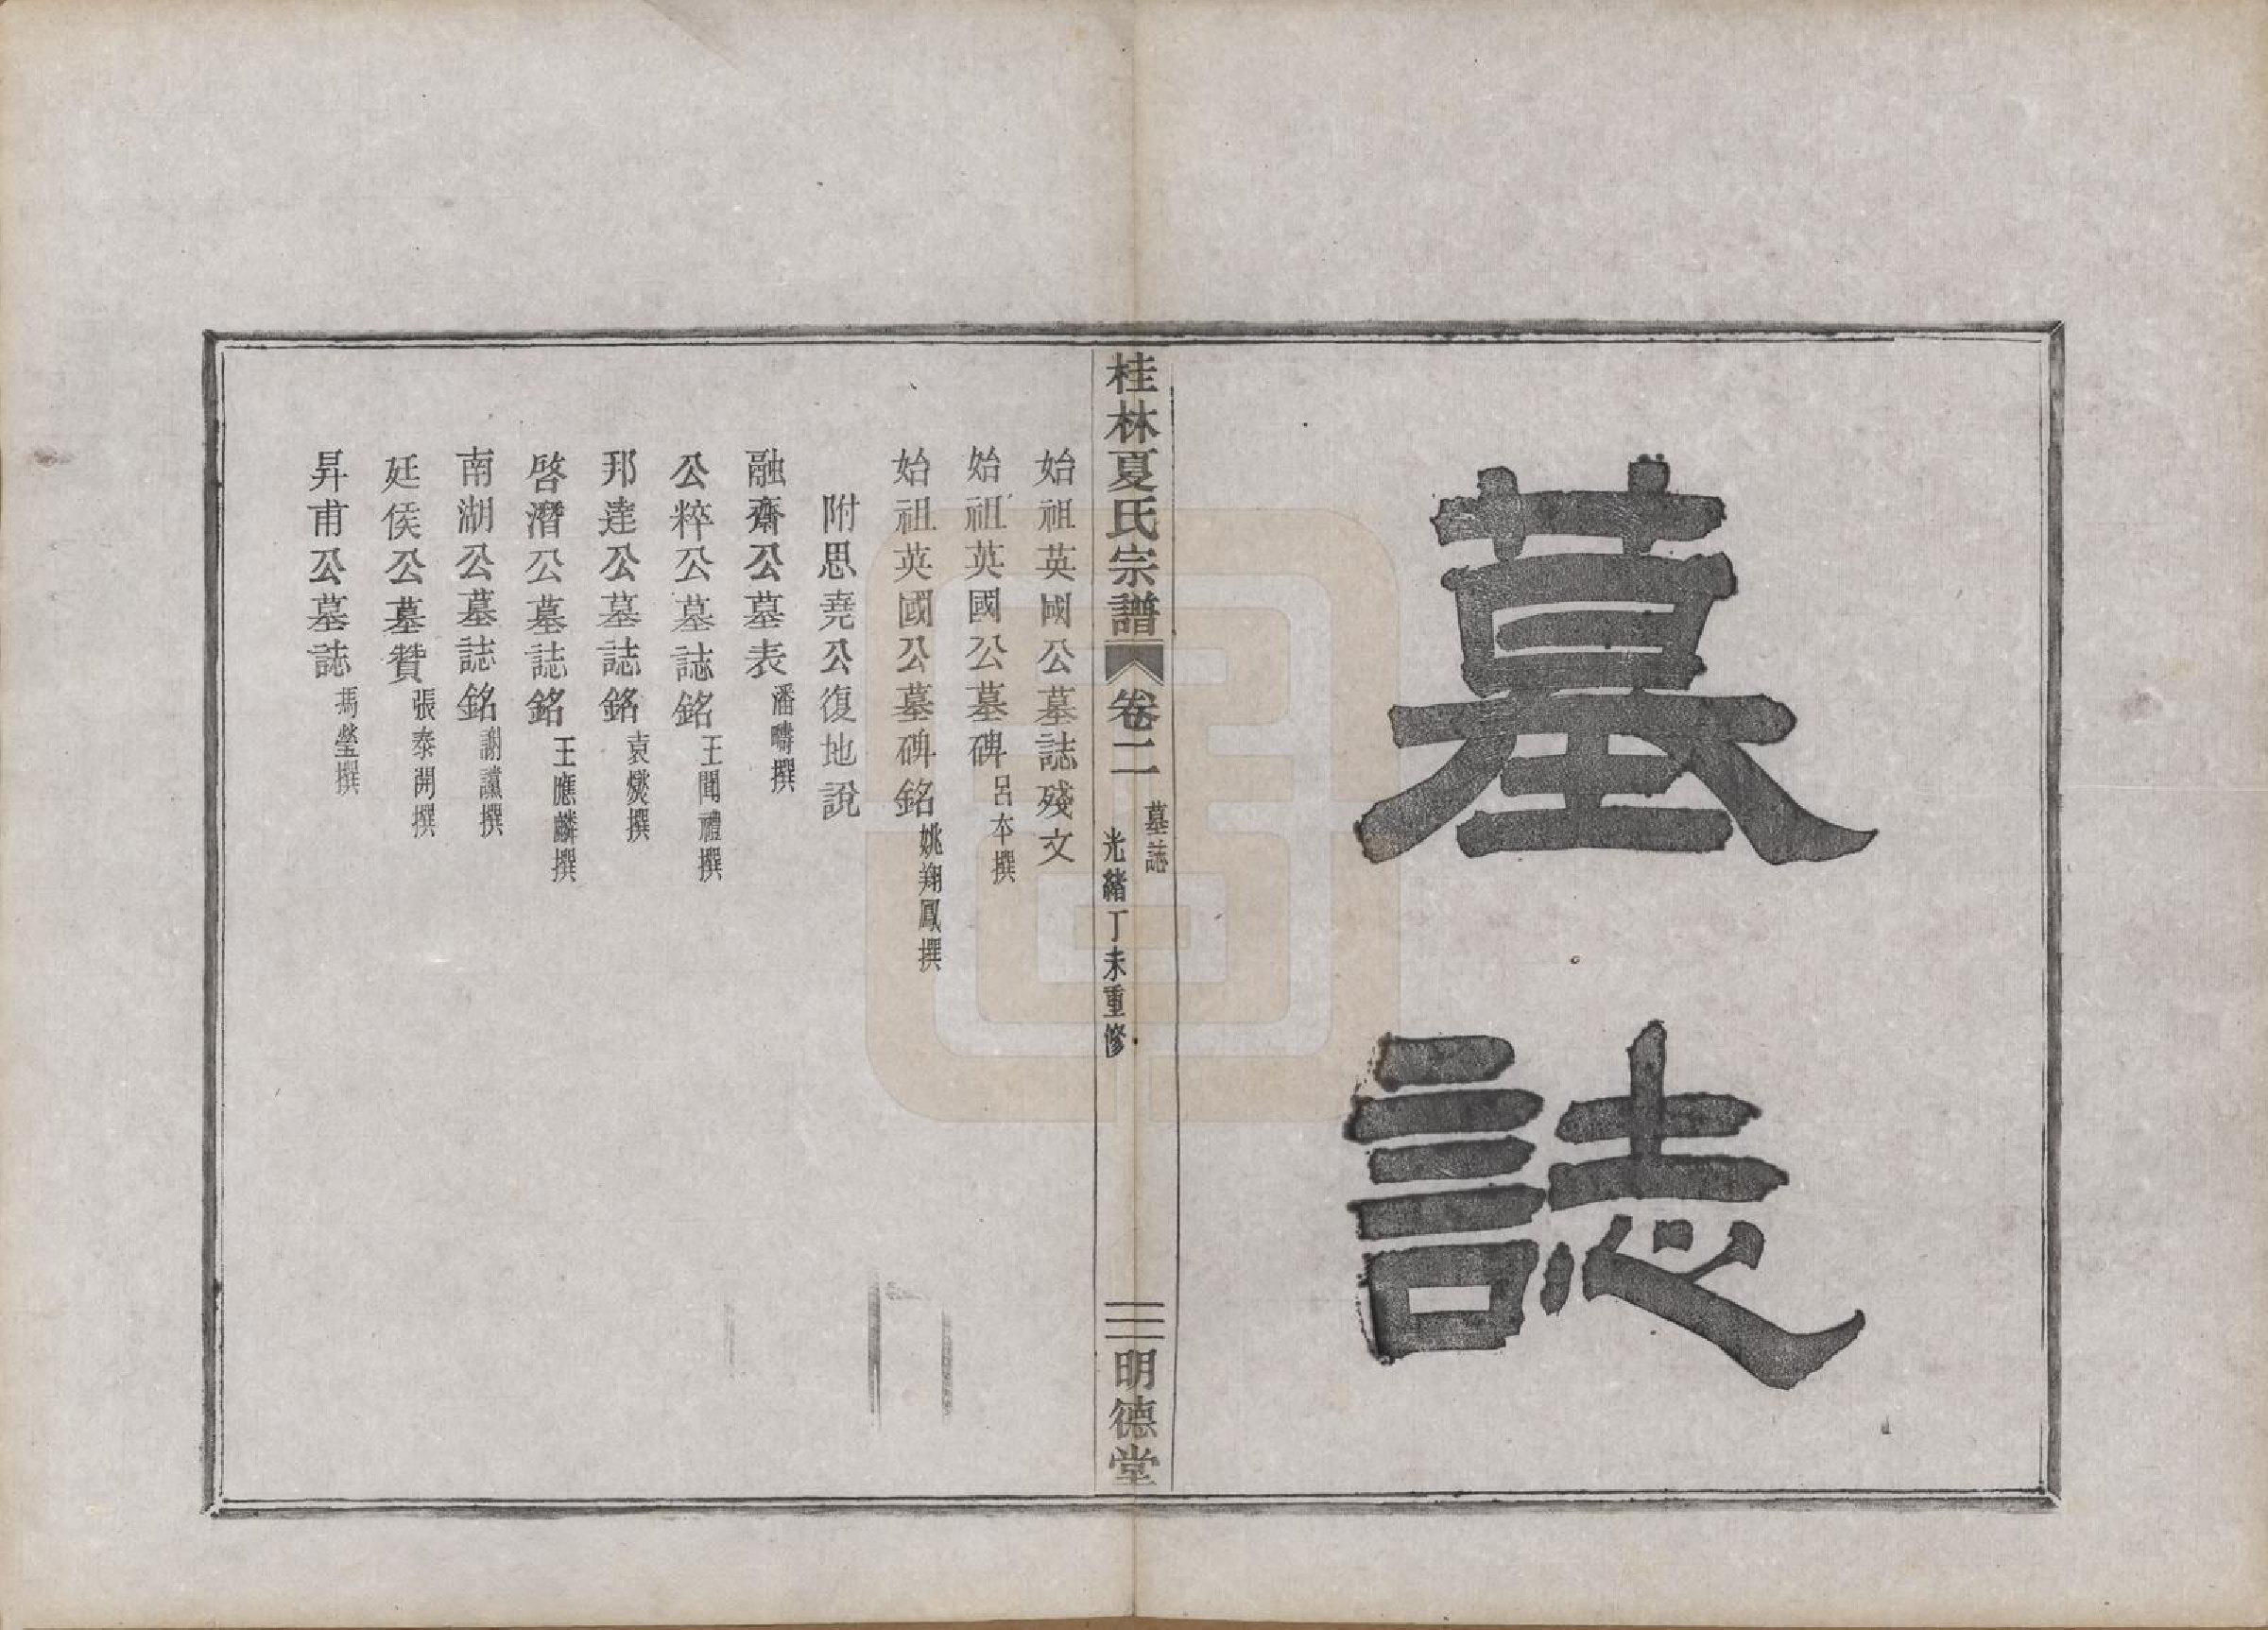 墓誌
桂林夏氏宗譜 卷二 墓誌 光緒丁未重修 明德堂
始祖英國公墓誌殘文
始祖英國公墓碑 呂本撰
始祖英國公墓碑銘 姚翔鳳撰
附思堯公復地說
融齋公墓表 潘疇撰
公粹公墓誌銘 王聞禮撰
邦達公墓誌銘 袁爕撰
啓潛公墓誌銘 王應麟撰
南湖公墓誌銘 謝讜撰
廷侯公墓贊 張泰開撰
昇甫公墓誌 馮瑩撰